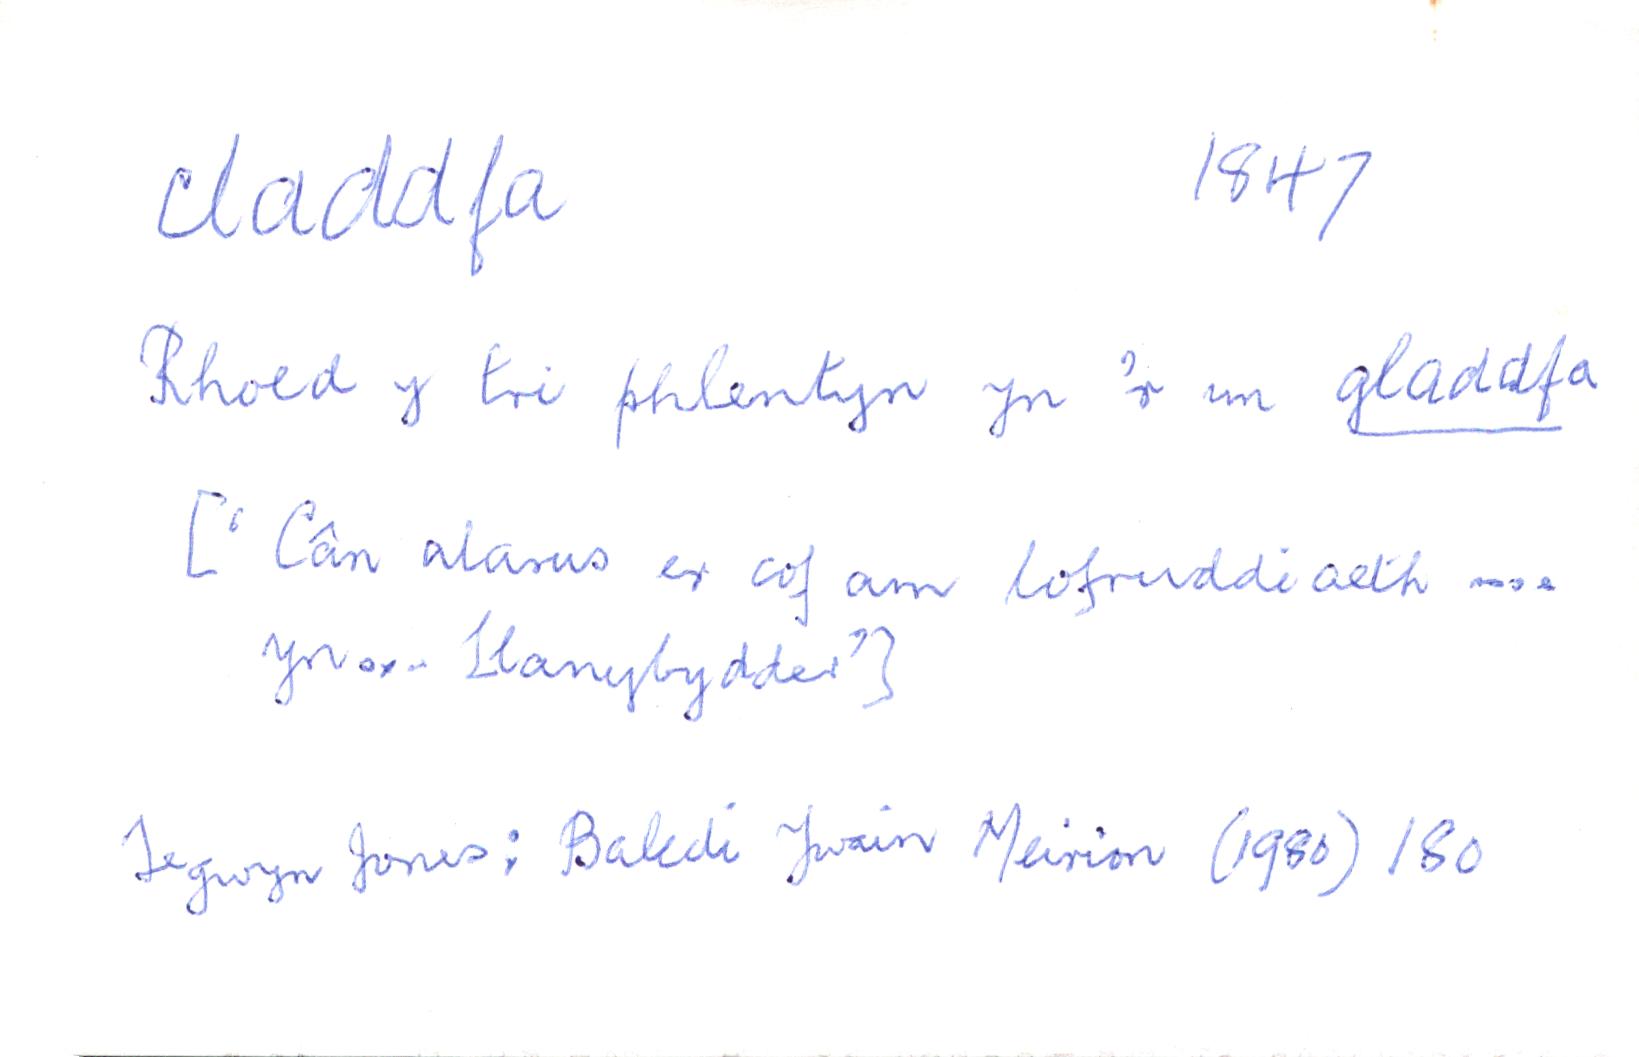 claddfa 1847
Rhoed y tri phlentyn yn 'r un gladdfa
[‘Cân alarus er cof am lofruddiaeth ....
yn .... Llanybydder’]
Tegwyn Jones: Baledi Ywain Meirion (1980) 180